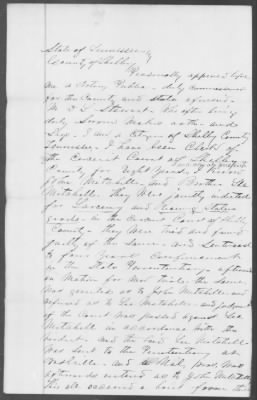 State of Tennessee
County of Shelby
Personally appeared before
me a Notary Public - duly commissioned
for the County and State aforesaid -
Stewart - who after being
duly Sworn makes oath - and
Says - I am a Citizen of Shelby County
Tennessee - I have been Clerk of
the Circuit Court of Shelby
County for Eight years. I know
John Mitchell and Brother Lee
Mitchell. They were jointly indicted
for Larceny and Receiving Stolen
goods - in the Circuit Court of Shelby
County - they were tried and found
guilty of the Same - and Sentenced
to four years confinement
in the State Penitentiary - afterwards
on Motion for New trial - the Same
was granted as to John Mitchell and
refused as to Lee Mitchell - and judgment
of the Court was passed against Lee
Mitchell in accordance with the
verdict - and the said Lee Mitchell
was sent to the Penitentiary at
Nashville - and
afterwards entered as to John Mitchell